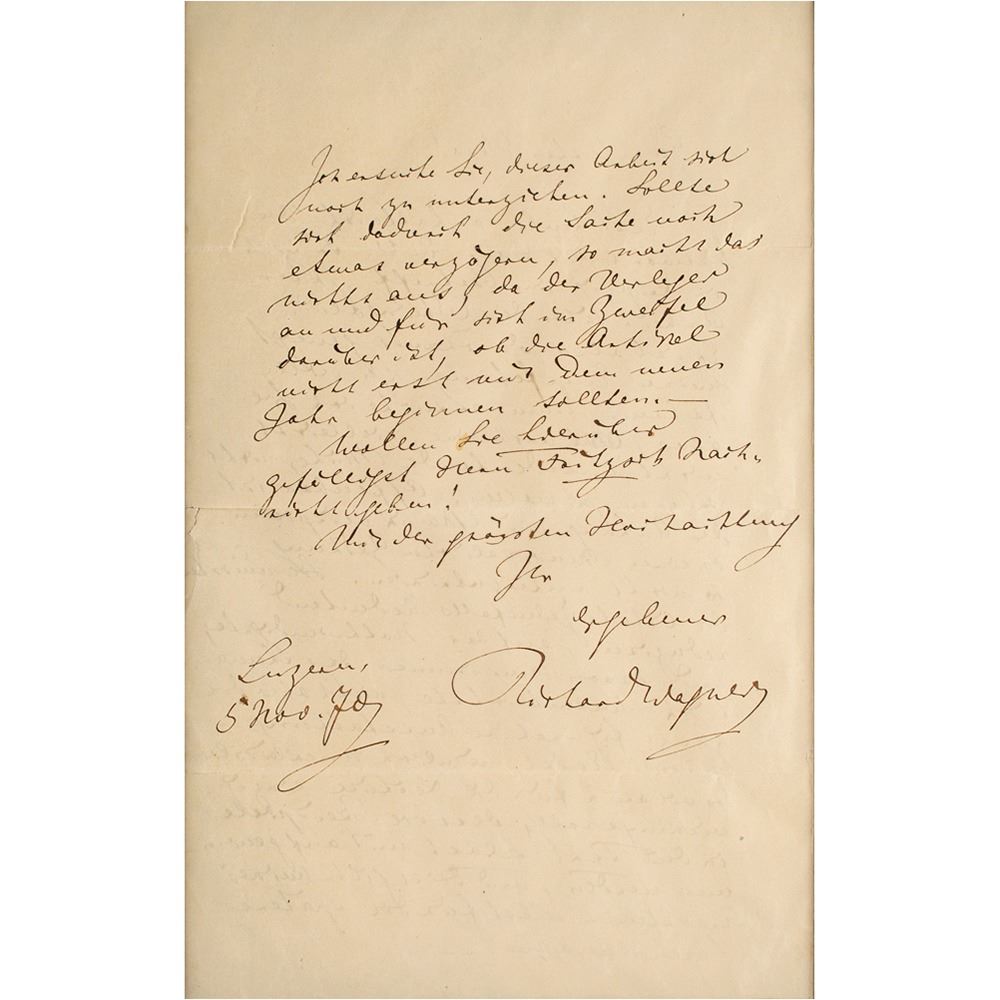 Ich ersuche Sie, dieser Arbeit sich
noch zu unterziehen. Sollte
sich dadurch die Sache noch
etwas verzögern, so macht das
nichts aus, da der Verleger
an und für sich im Zweifel
darüber ist, ob die Artikel
nicht erst mit dem neuen
Jahr beginnen sollten.—
Wollen Sie hierüber
gefälligst Herrn Fritzsch Nach-
richt geben!
Mit der grössten Hochachtung
Ihr
ergebener
Richard Wagner
Luzern,
5 Nov. 70